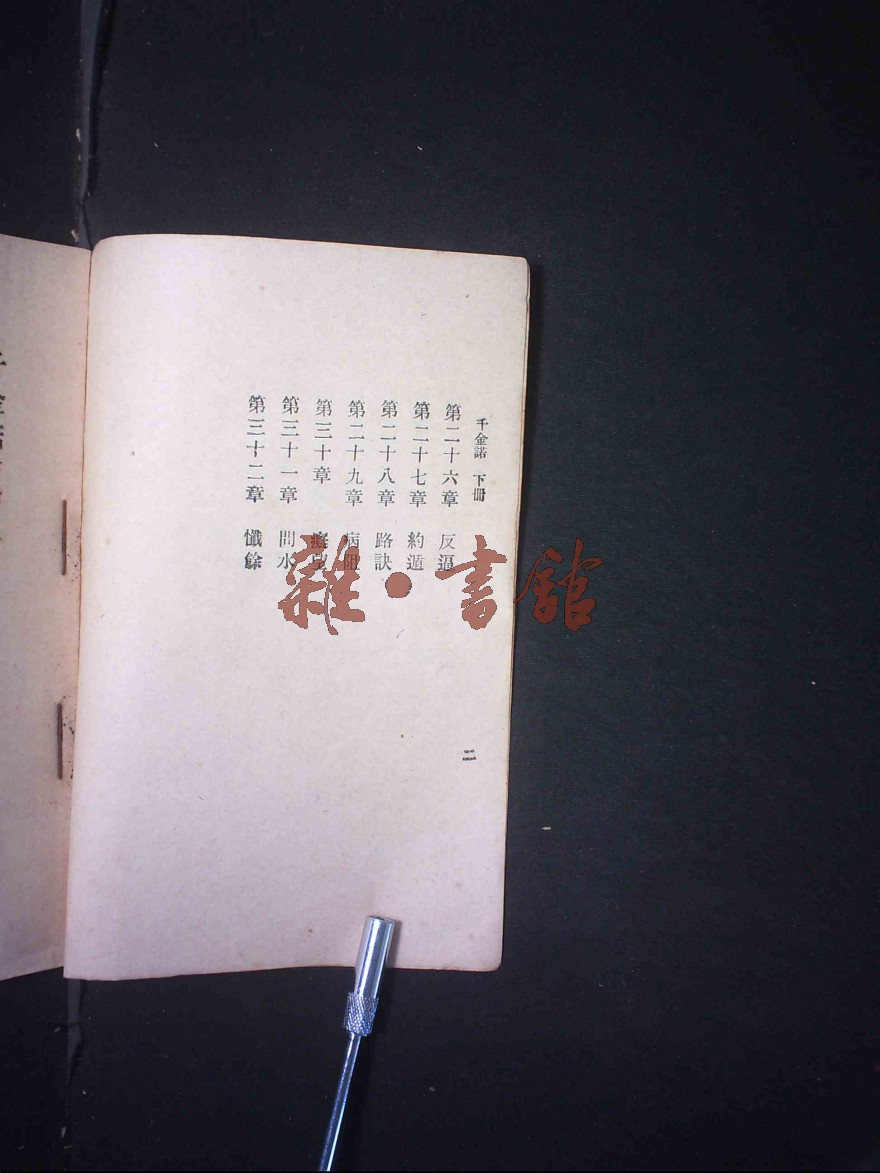 千金諾 下冊
第二十六章 反逼
第二十七章 約遁
第二十八章 路訣
第二十九章 病阻
第三十章 癡望
第三十一章 問水
第三十二章 懺餘
二
雜·書館